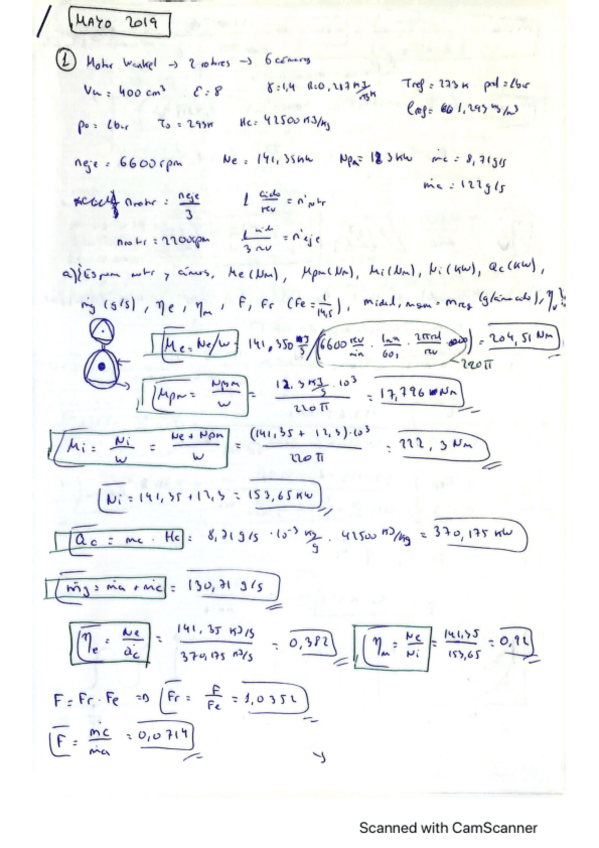 MAYO 2019
① Motor Wankel → 2 rotores → 6 cámaras
Vu = 400 cm³ ε = 8 γ = 1,4 R = 0,287 KJ/KgK Tref = 273 K pref = 1 bar
ρref = 1,293 kg/m³
po = 1 bar To = 293K Hc = 42500 KJ/kg
neje = 6600 rpm Ne = 141,35 KW Npm = 12,3 KW ṁc = 8,71 g/s
ṁa = 122 g/s
nrotor = neje/3 1 ciclo/rev = n'rotr
nrotr = 2200 rpm 1 ciclo/3 rev = n'eje
a) Esquema motor y cámaras, Me (Nm), Mpm (Nm), Mi (Nm), Ni (KW), Qc (KW),
ṁg (g/s), ηe, ηm, F, Fr (Fe = 1/14,5),
Me = Ne/w = 141,350 / (6600 rev/min · 1 min/60s · 2π rad/rev) = 204,51 Nm
220π
Mpm = Npm/w = 12,3 · 10³/220π = 17,796 Nm
Mi = Ni/w = Ne + Npm/w = (141,35 + 12,3)·10³/220π = 222,3 Nm
Ni = 141,35 + 12,3 = 153,65 KW
Qc = ṁc · Hc = 8,71 g/s · 10⁻³ kg/g · 42500 KJ/kg = 370,175 KW
ṁg = ṁa + ṁc = 130,71 g/s
ηe = Ne/Qc = 141,35 KJ/s / 370,175 KJ/s = 0,382 ηm = Ne/Ni = 141,35/153,65 = 0,92
F = Fr · Fe ⇒ Fr = F/Fe = 1,0352
F = ṁc/ṁa = 0,0714
Scanned with CamScanner